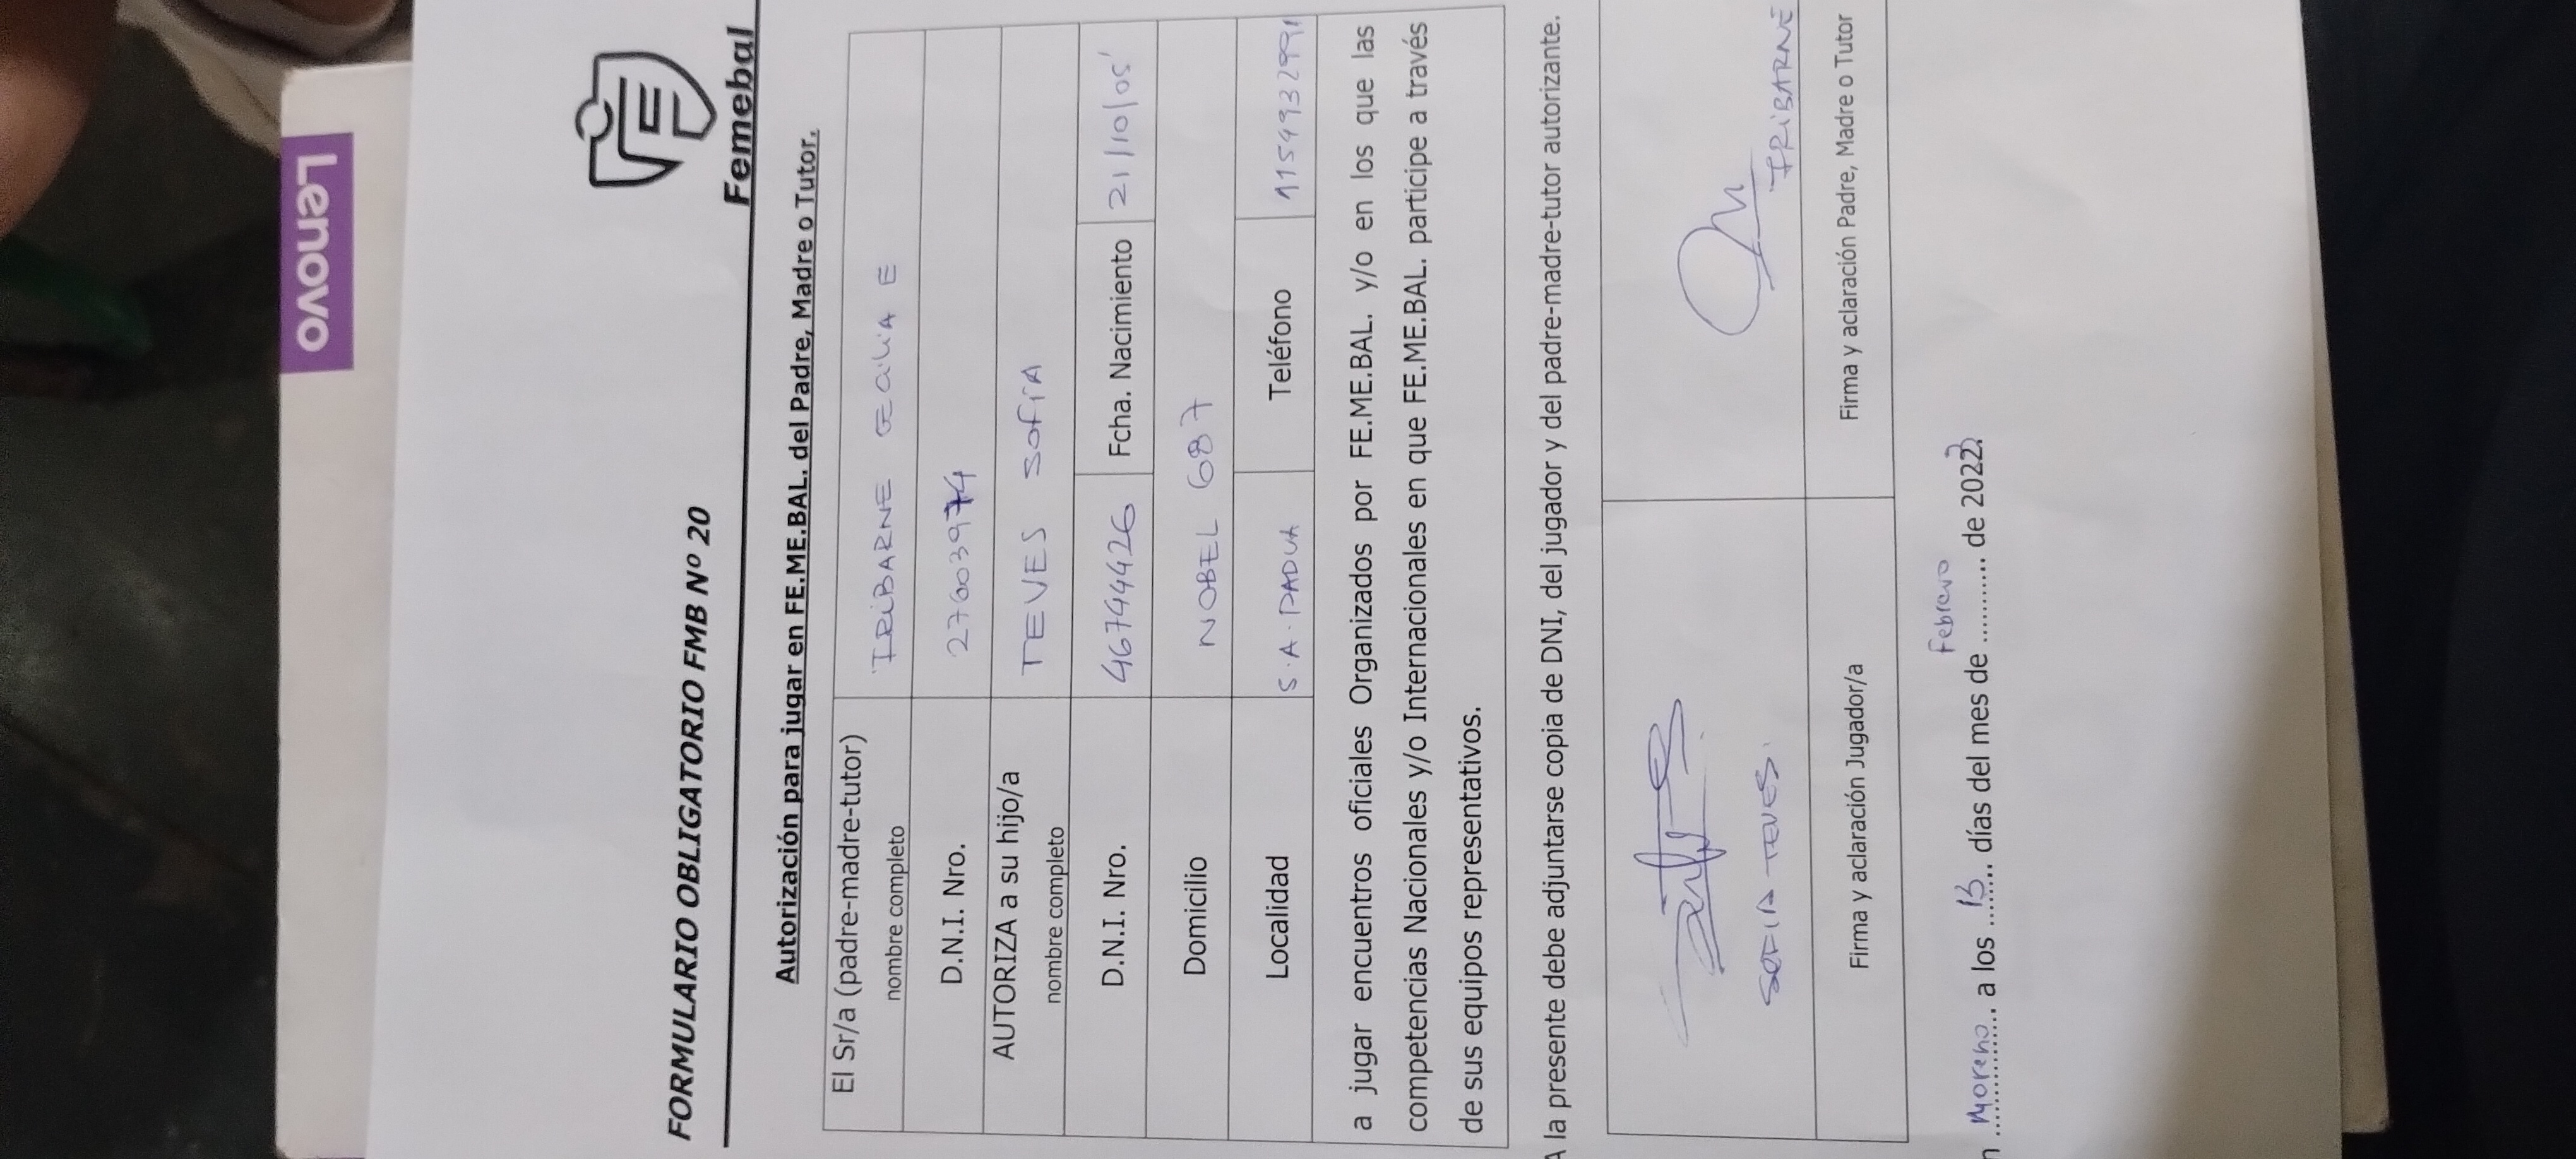 Lenovo
Femebal
FORMULARIO OBLIGATORIO FMB Nº 20
Autorización para jugar en FE.ME.BAL. del Padre, Madre o Tutor.
El Sr/a (padre-madre-tutor) IRIBARNE E
nombre completo
D.N.I. Nro. 27603974
AUTORIZA a su hijo/a TEVES SOFIA
nombre completo
D.N.I. Nro. 46744426 Fcha. Nacimiento 21/10/05
Domicilio NOBEL 687
Localidad S.A. PADUA Teléfono 1154932991
a jugar encuentros oficiales Organizados por FE.ME.BAL. y/o en los que las
competencias Nacionales y/o Internacionales en que FE.ME.BAL. participe a través
de sus equipos representativos.
A la presente debe adjuntarse copia de DNI, del jugador y del padre-madre-tutor autorizante.
SOFIA TEVES. IRIBARNE
Firma y aclaración Jugador/a Firma y aclaración Padre, Madre o Tutor
n Moreno a los 13 días del mes de Febrero de 2022